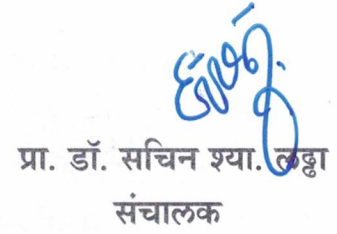 प्रा. डॉ. सचिन श्या. लढ्ढा
संचालक